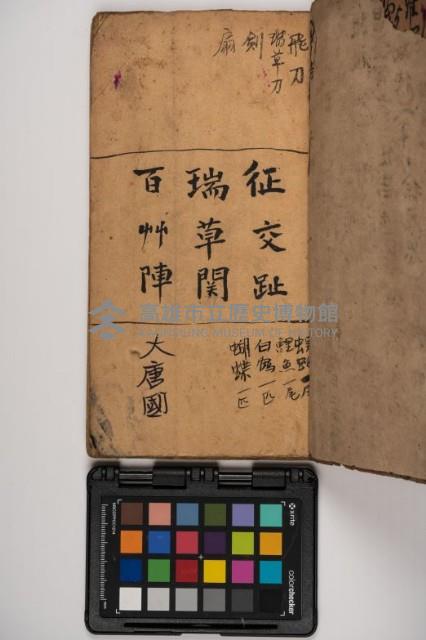 飛刀
瑞草刀
劍
扇
征交趾
瑞草関
百艸陣
鯉魚一尾
白鶴一匹
蝴蝶一匹
大唐國
高雄市立歷史博物館
KAOHSIUNG MUSEUM OF HISTORY
x-rite
colorchecker